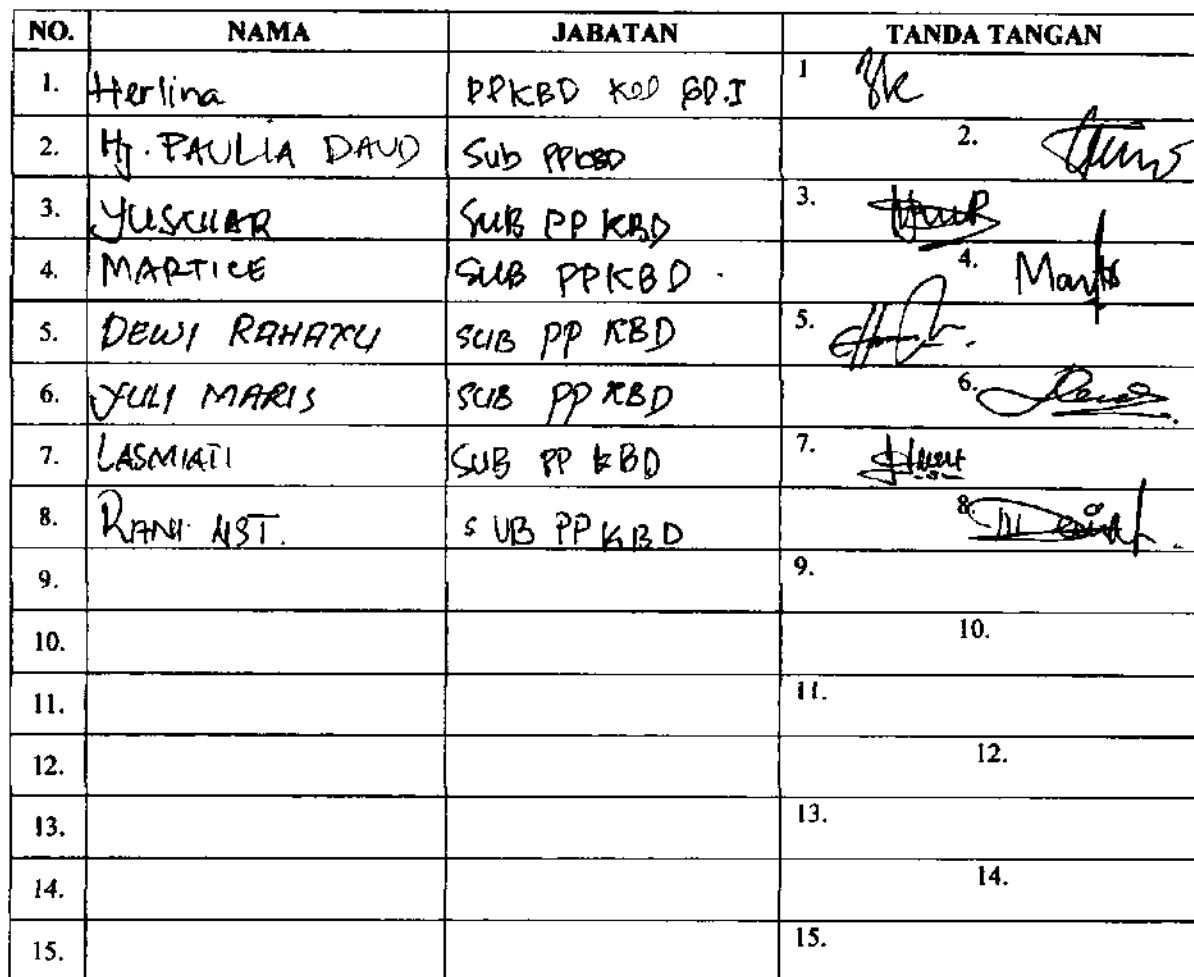 NO. NAMA JABATAN TANDA TANGAN
1. Herlina PPKBD Kel 1
2. Hj. PAULIA DAUD Sub PPKBD 2.
3. YUSCHAR SUB PP KBD 3.
4. MARTICE SUB PPKBD 4.
5. DEWI RAHAYU SUB PP KBD 5.
6. YULI MARIS SUB PP KBD 6.
7. LASMIATI SUB PP KBD 7.
8. RANI NST. SUB PPKBD 8.
9. 9.
10. 10.
11. 11.
12. 12.
13. 13.
14. 14.
15. 15.